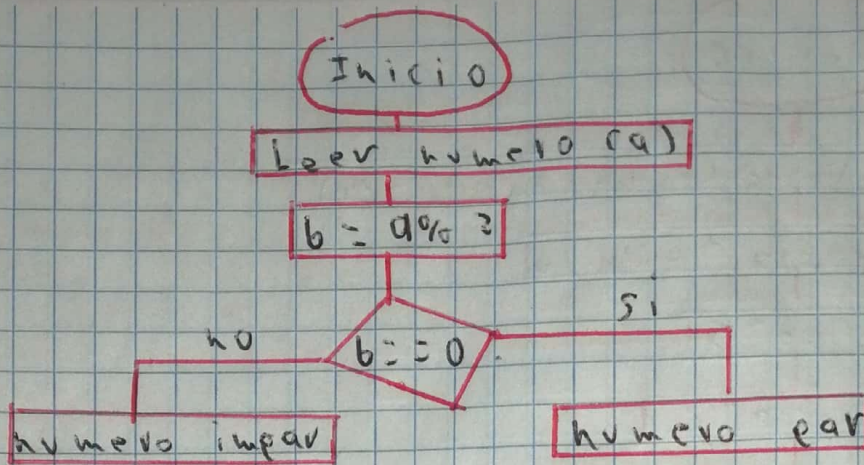 Inicio
Leer numero (a)
b = a% 2
si
no
b == 0
numero impar
numero par